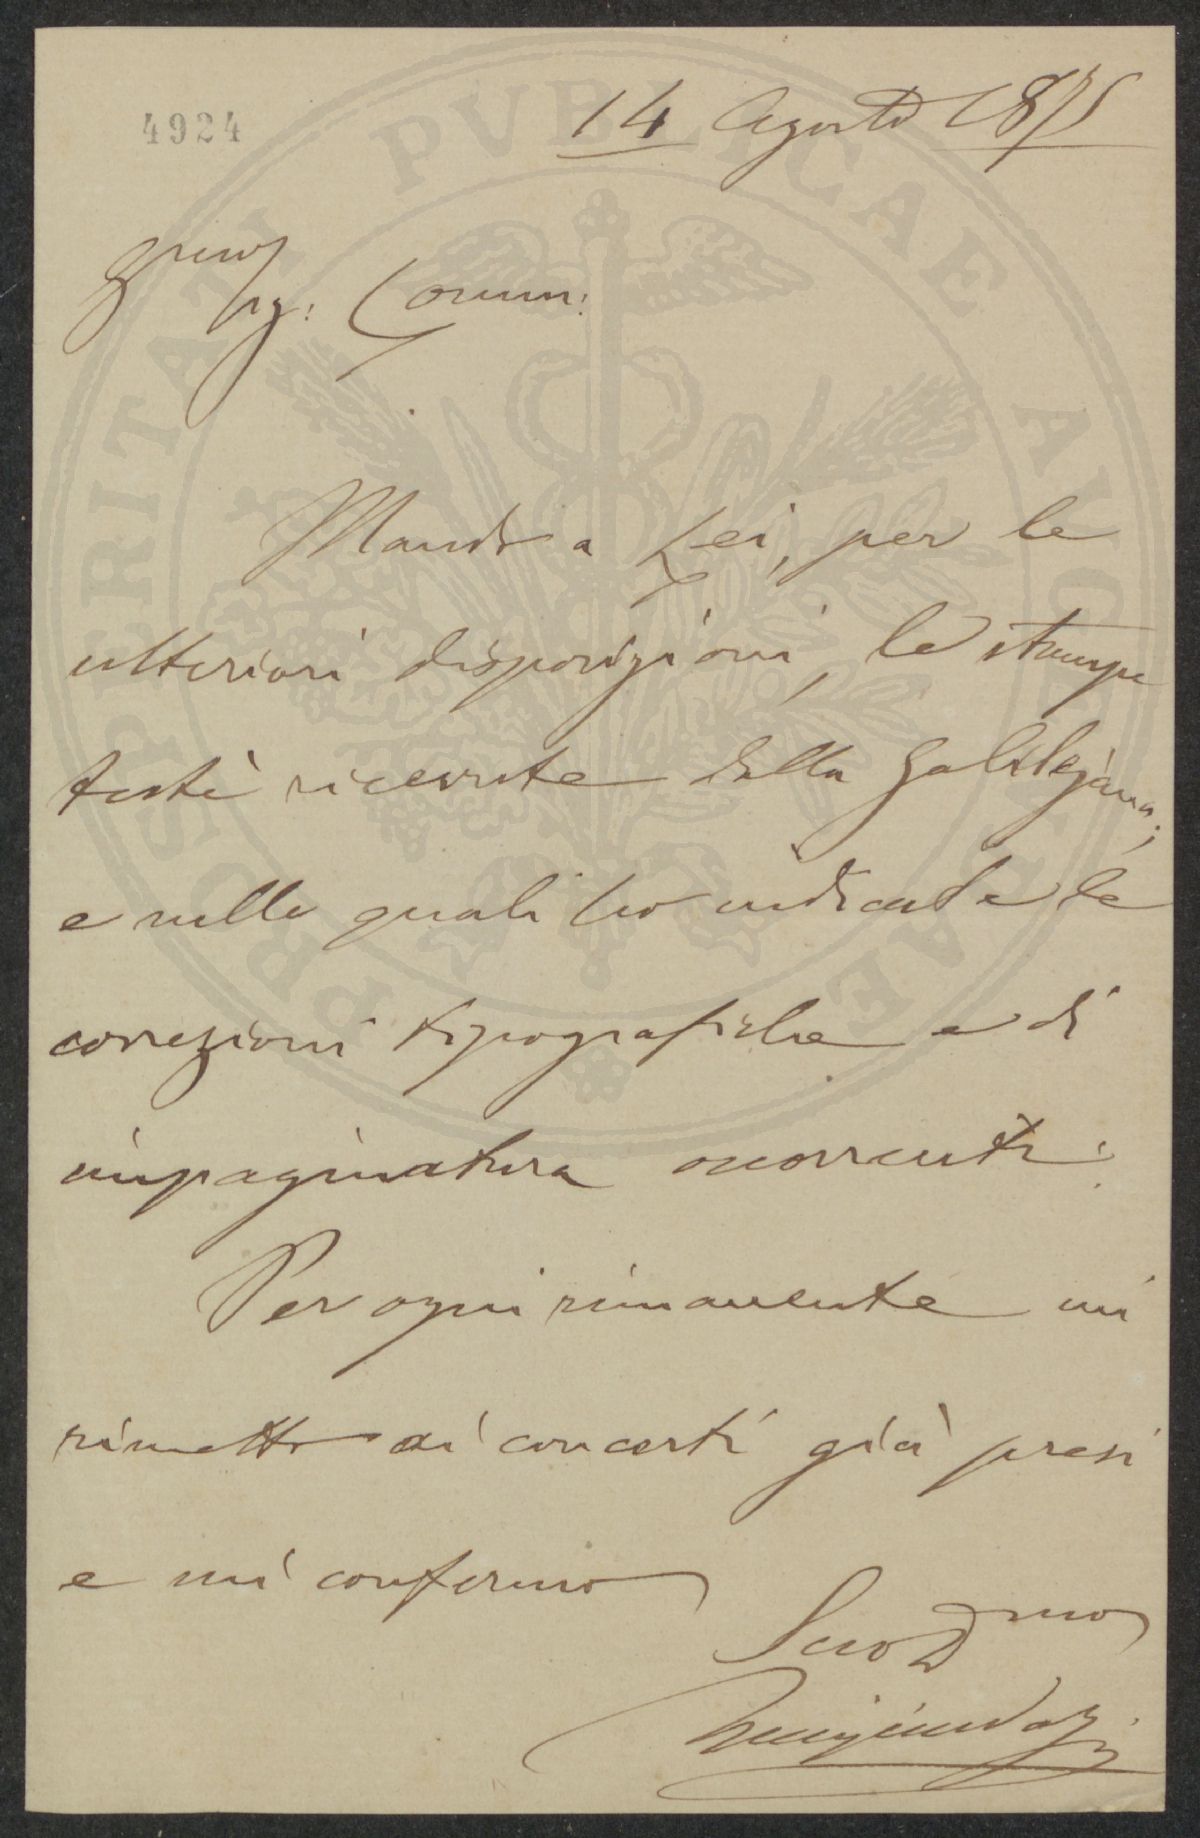 4924
14 Agosto 1875
Sig: Comm:
Mando a Lei, per le
ulteriori disposizioni, le stampe
testè ricevute dalla Galilejana;
e nelle quali ho indicate le
correzioni tipografiche e di
impaginatura occorrenti.
Per ogni rimanente mi
rimetto ai concerti già presi
e mi confermo
Suo Dmo
PROSPERITATI PVBLICAE AVGENDAE